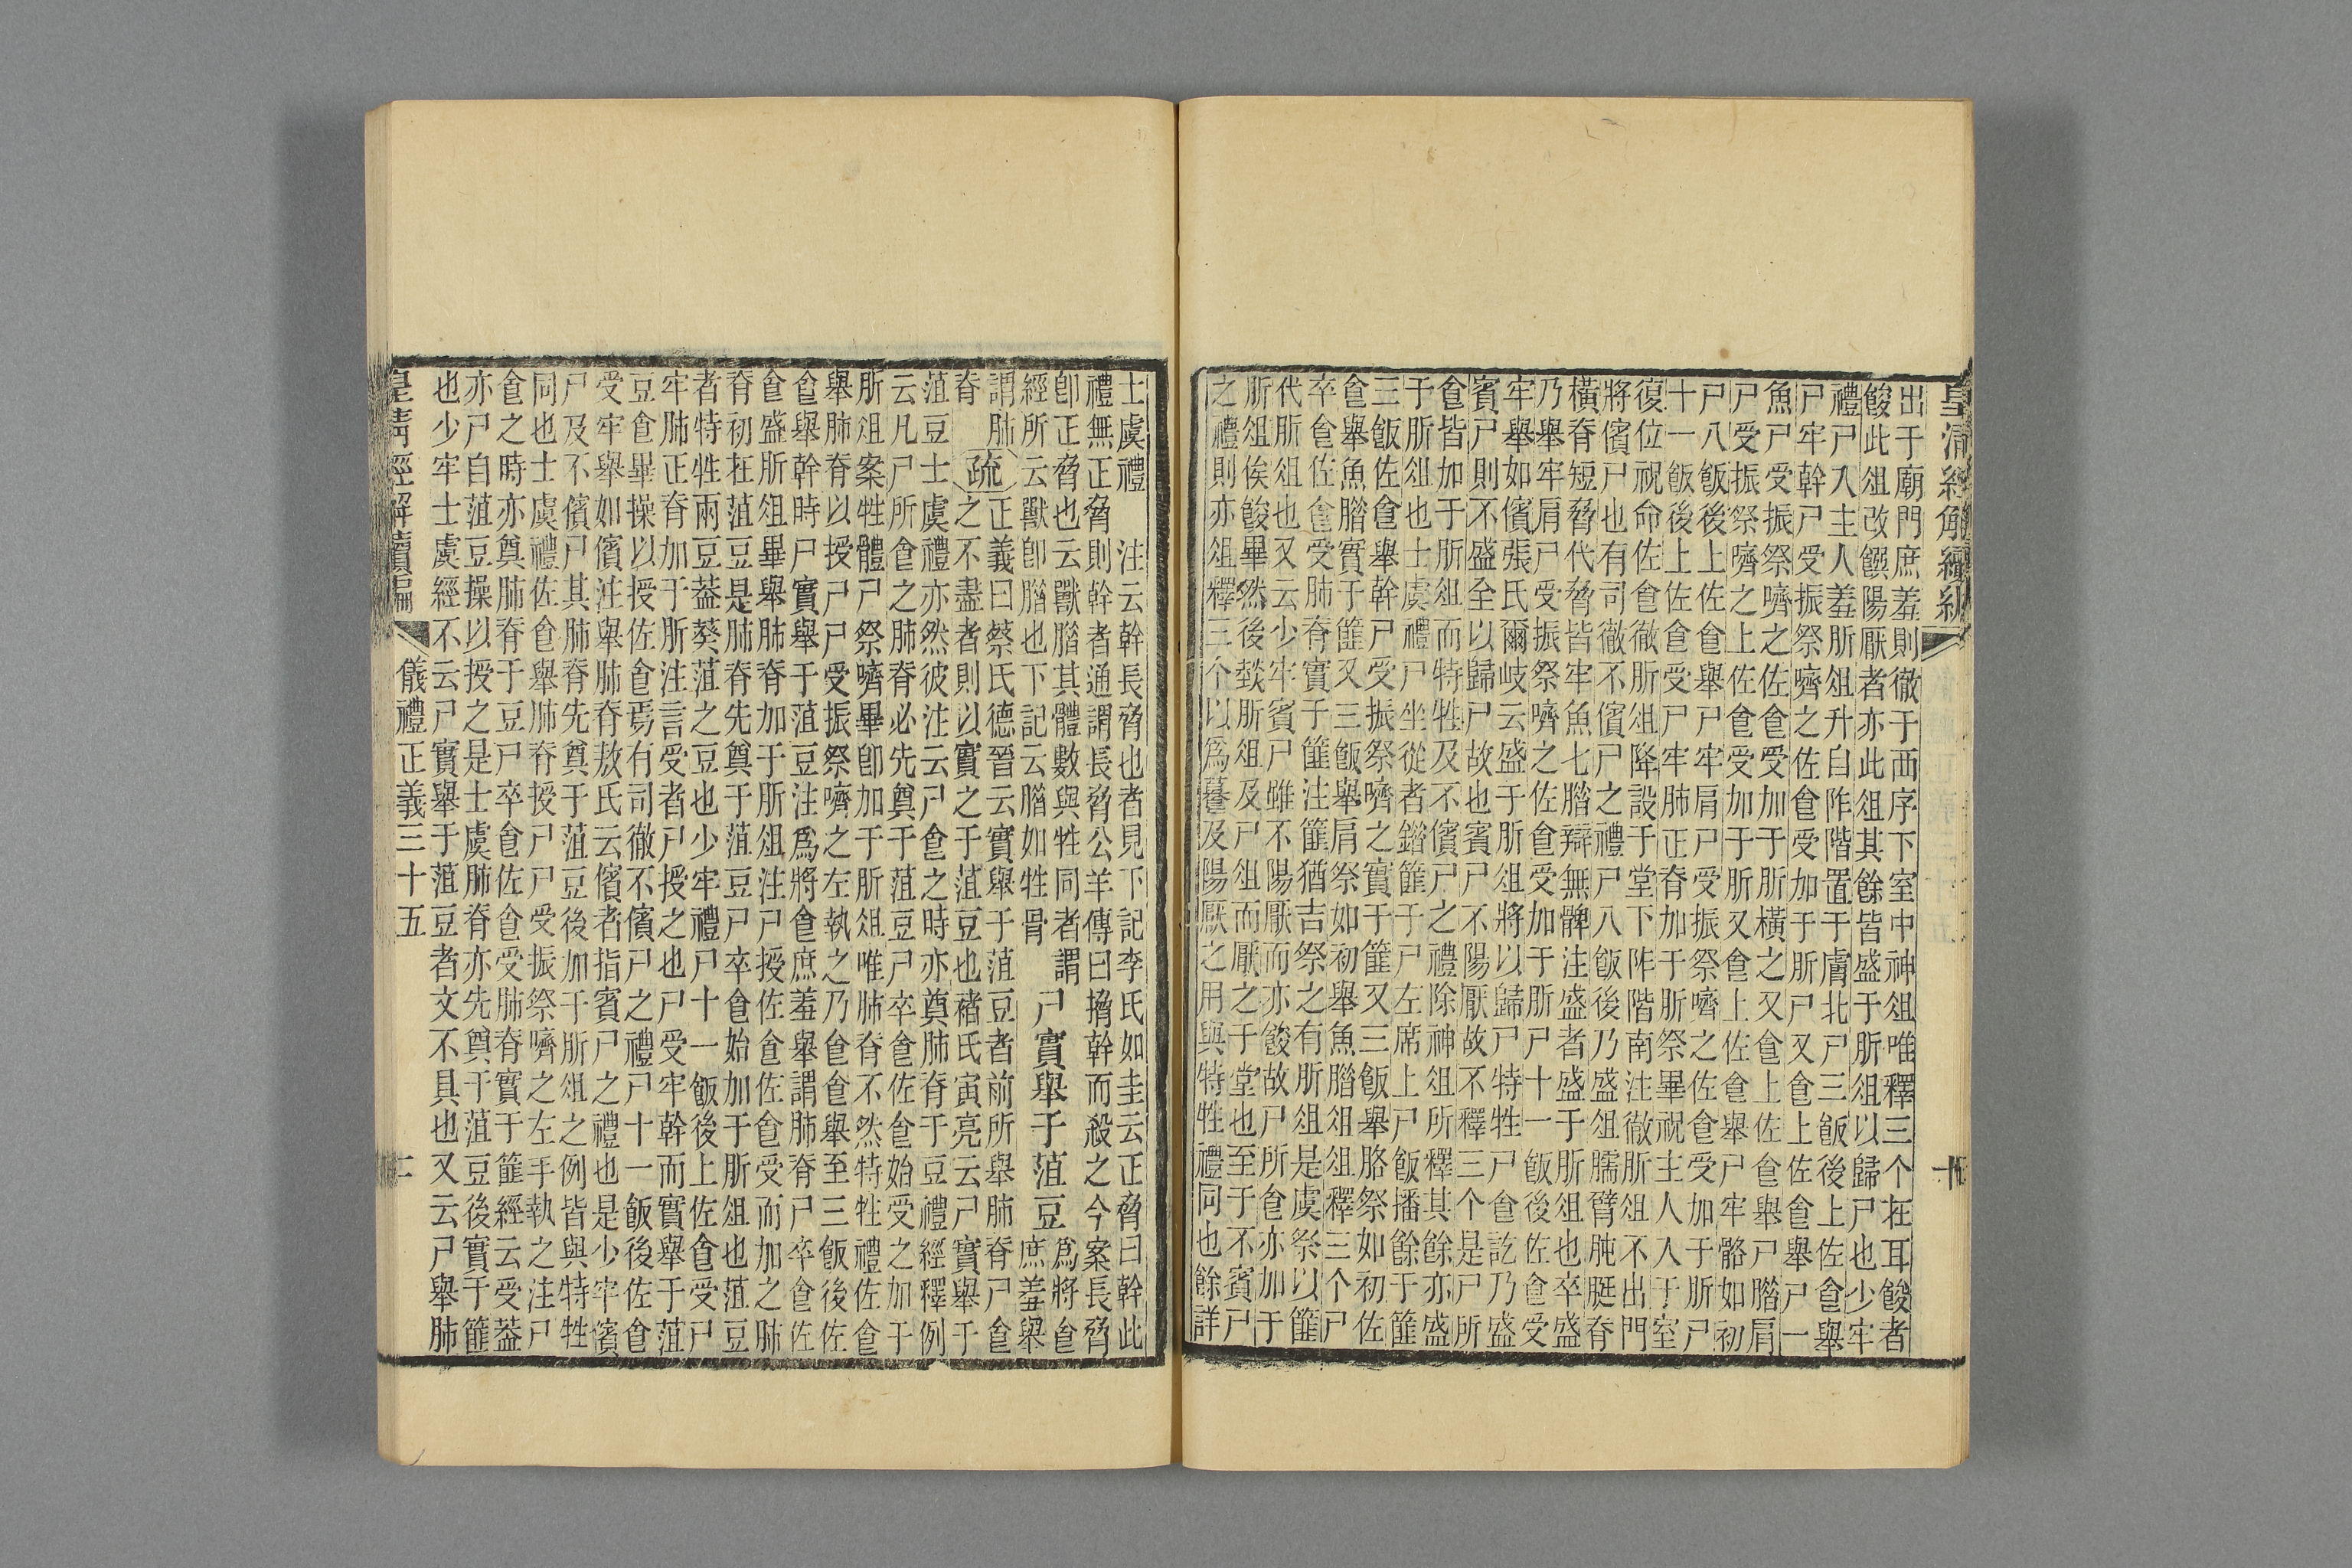 皇清經解續編 十
出于廟門庶羞則徹于西序下室中神俎唯釋三个在耳餕者
餕此俎改饌陽厭者亦此俎其餘皆盛于肵俎以歸尸也少牢
禮尸入主人羞肵俎升自阼階置于膚北尸三飯後上佐食舉
尸牢幹尸受振祭嚌之佐食受加于肵尸又食上佐食舉尸一
魚尸受振祭嚌之佐食受加于肵橫之又食上佐食舉尸腊肩
尸受振祭嚌之上佐食受加于肵又食上佐食舉尸牢骼如初
尸八飯後上佐食舉尸牢肩尸受振祭嚌之佐食受加于肵尸
十一飯後上佐食受尸牢肺正脊加于肵祭畢祝主人入于室
復位祝命佐食徹肵俎降設于堂下阼階南注徹肵俎不出門
將儐尸也有司徹不儐尸之禮尸八飯後乃盛俎臑臂肫脡脊
橫脊短脅代脅皆牢魚七腊辯無髀注盛者盛于肵俎也卒盛
乃舉牢肩尸受振祭嚌之佐食受加于肵尸十一飯後佐食受
牢舉如儐張氏爾岐云盛于肵俎將以歸尸特牲尸食訖乃盛
賓尸則不盛全以歸尸故也賓尸不陽厭故不釋三个是尸所
食皆加于肵俎而特牲及不儐尸之禮除神俎所釋其餘亦盛
于肵俎也士虞禮尸坐從者錯篚于尸左席上尸飯播餘于篚
三飯佐食舉幹尸受振祭嚌之實于篚又三飯舉胳祭如初佐
食舉魚腊實于篚又三飯舉肩祭如初舉魚腊俎俎釋三个尸
卒食佐食受肺脊實于篚注篚猶吉祭之有肵俎是虞祭以篚
代肵俎也又云少牢賓尸雖不陽厭而亦餕故尸所食亦加于
肵俎俟餕畢然後燅肵俎及尸俎而厭之于堂也至于不賓尸
之禮則亦俎釋三个以爲及陽厭之用與特牲禮同也餘詳
士虞禮　注云幹長脅也者見下記李氏如圭云正脅曰幹此
禮無正脅則幹者通謂長脅公羊傳曰搚幹而殺之今案長脅
卽正脅也云獸腊其體數與牲同者謂
經所云獸卽腊也下記云腊如牲骨
尸實舉于菹豆
爲將食
庶羞舉
謂肺
脊
疏
正義曰蔡氏德晉云實舉于菹豆者前所舉肺脊尸食
之不盡者則以實之于菹豆也褚氏寅亮云尸實舉于
菹豆士虞禮亦然彼注云尸食之時亦奠肺脊于豆禮經釋例
云凡尸所食之肺脊必先奠于菹豆尸卒食佐食始受之加于
肵俎案牲體尸祭嚌畢卽加于肵俎唯肺脊不然特牲禮佐食
舉肺脊以授尸尸受振祭嚌之左執之乃食食舉至三飯後佐
食舉幹時尸實舉于菹豆注爲將食庶羞舉謂肺脊尸卒食佐
食盛肵俎畢舉肺脊加于肵俎注尸授佐食佐食受而加之肺
脊初在菹豆是肺脊先奠于菹豆尸卒食始加于肵俎也菹豆
者特牲兩豆葢葵菹之豆也少牢禮尸十一飯後上佐食受尸
牢肺正脊加于肵注言受者尸授之也尸受牢幹而實舉于菹
豆食畢操以授佐食焉有司徹不儐尸之禮尸十一飯後佐食
受牢舉如儐注舉肺脊敖氏云儐者指賓尸之禮也是少牢儐
尸及不儐尸其肺脊先奠于菹豆後加于肵俎之例皆與特牲
同也士虞禮佐食舉肺脊授尸尸受振祭嚌之左手執之注尸
食之時亦奠肺脊于豆尸卒食佐食受肺脊實于篚經云受葢
亦尸自菹豆操以授之是士虞肺脊亦先奠于菹豆後實于篚
也少牢士虞經不云尸實舉于菹豆者文不具也又云尸舉肺
皇清經解續編 儀禮正義三十五